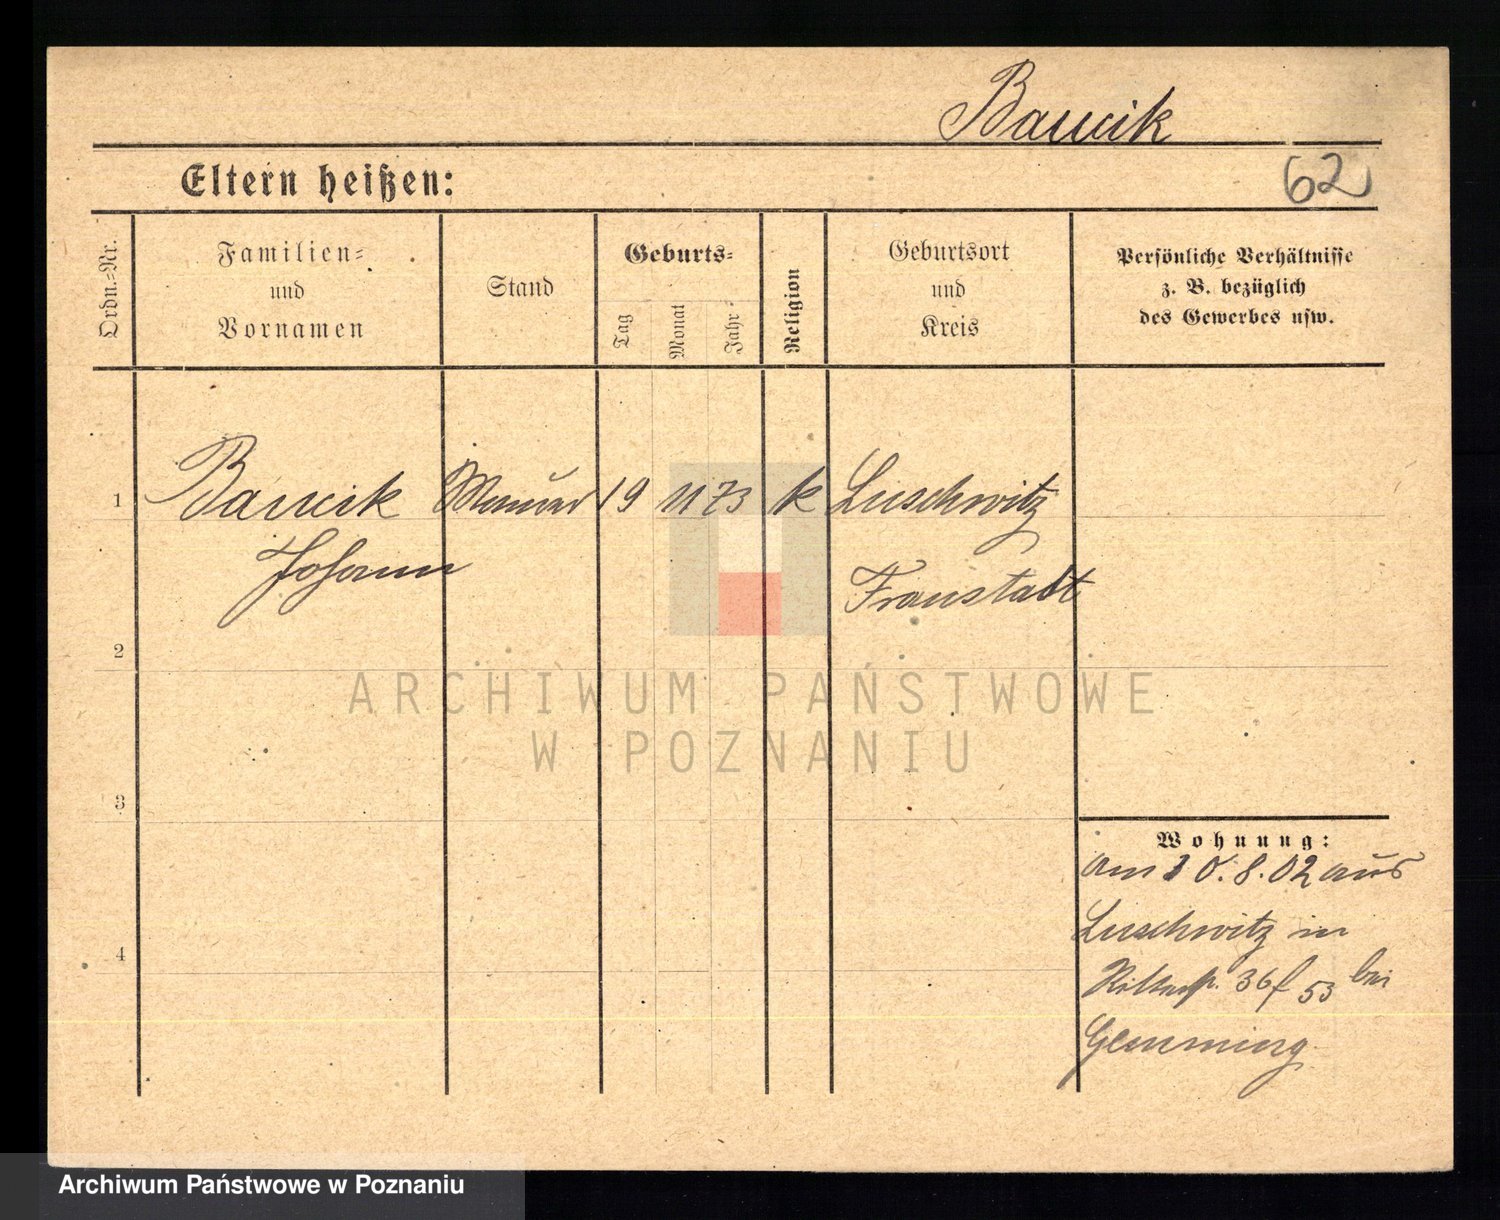 Bancik
Eltern heißen:
62
Ordn.-Nr.
Familien-
und
Vornamen
Stand
Geburts-
Tag
Monat
Jahr
Religion
Geburtsort
und
Kreis
Persönliche Verhältnisse
z. B. bezüglich
des Gewerbes usw.
1
Bancik
Maurer
19
11
73
k
Luschwitz
Johann
Fraustadt
2
ARCHIWUM PAŃSTWOWE
W POZNANIU
3
Wohnung:
am 10.8.02 aus
Luschwitz in
36 f 53 bei
4
Archiwum Państwowe w Poznaniu